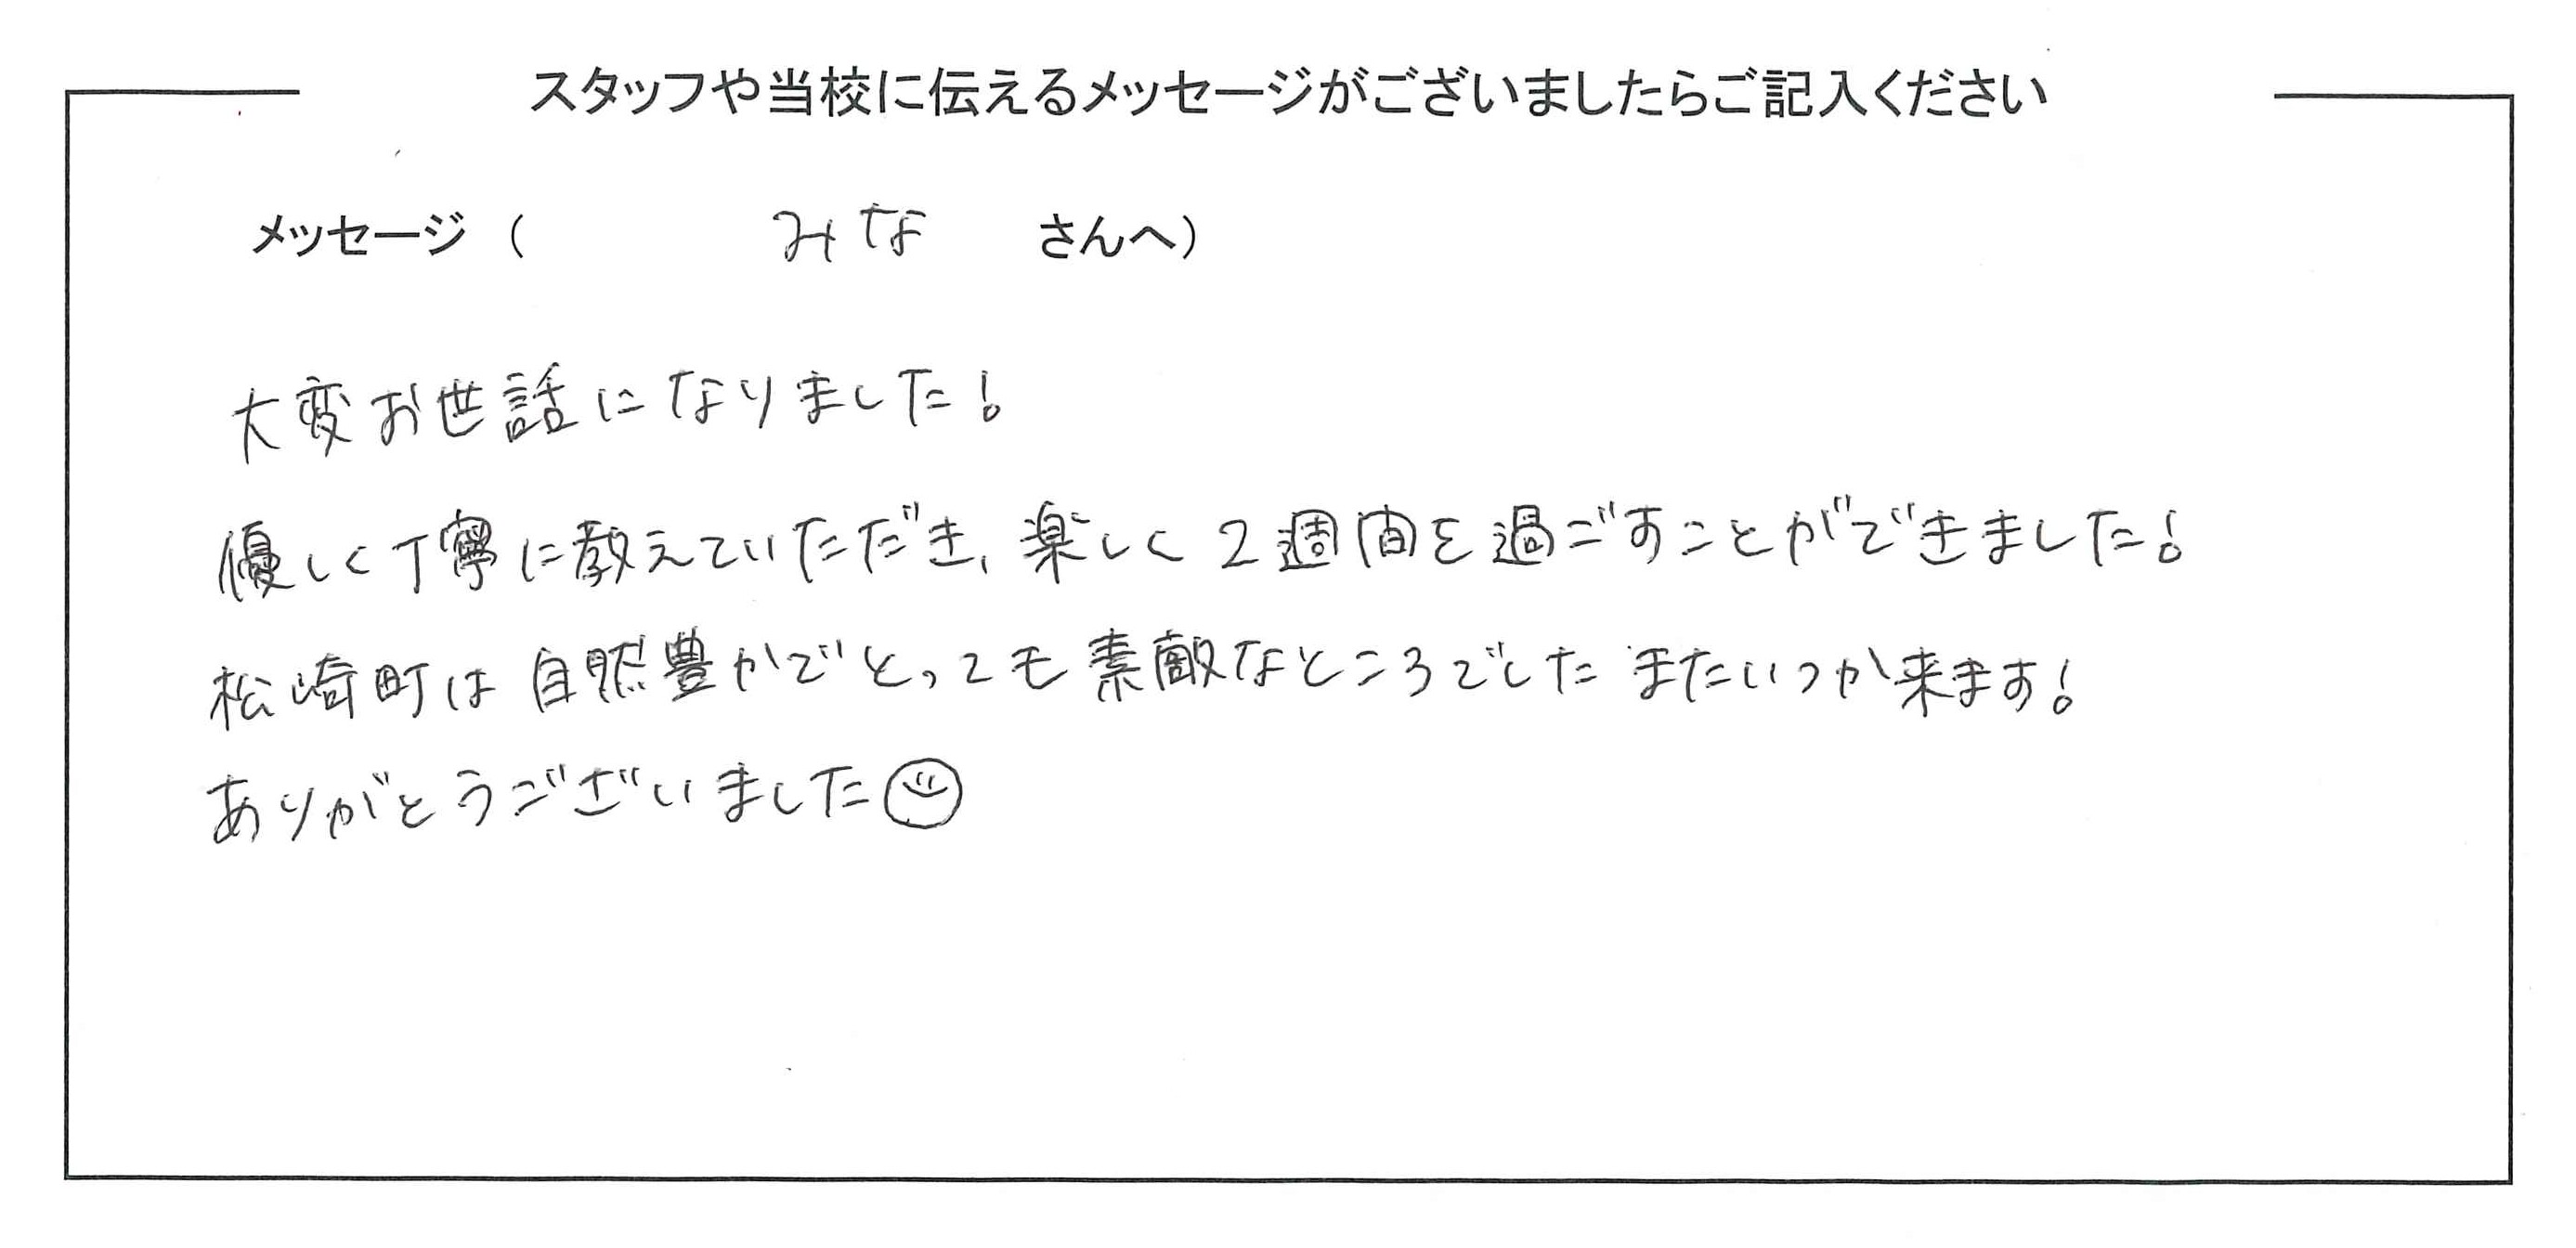 スタッフや当校に伝えるメッセージがございましたらご記入ください
メッセージ（ みな さんへ）
大変お世話になりました!
優しく丁寧に教えていただき、楽しく2週間を過ごすことができました!
松崎町は自然豊かでとっても素敵なところでした またいつか来ます!
ありがとうございました☺